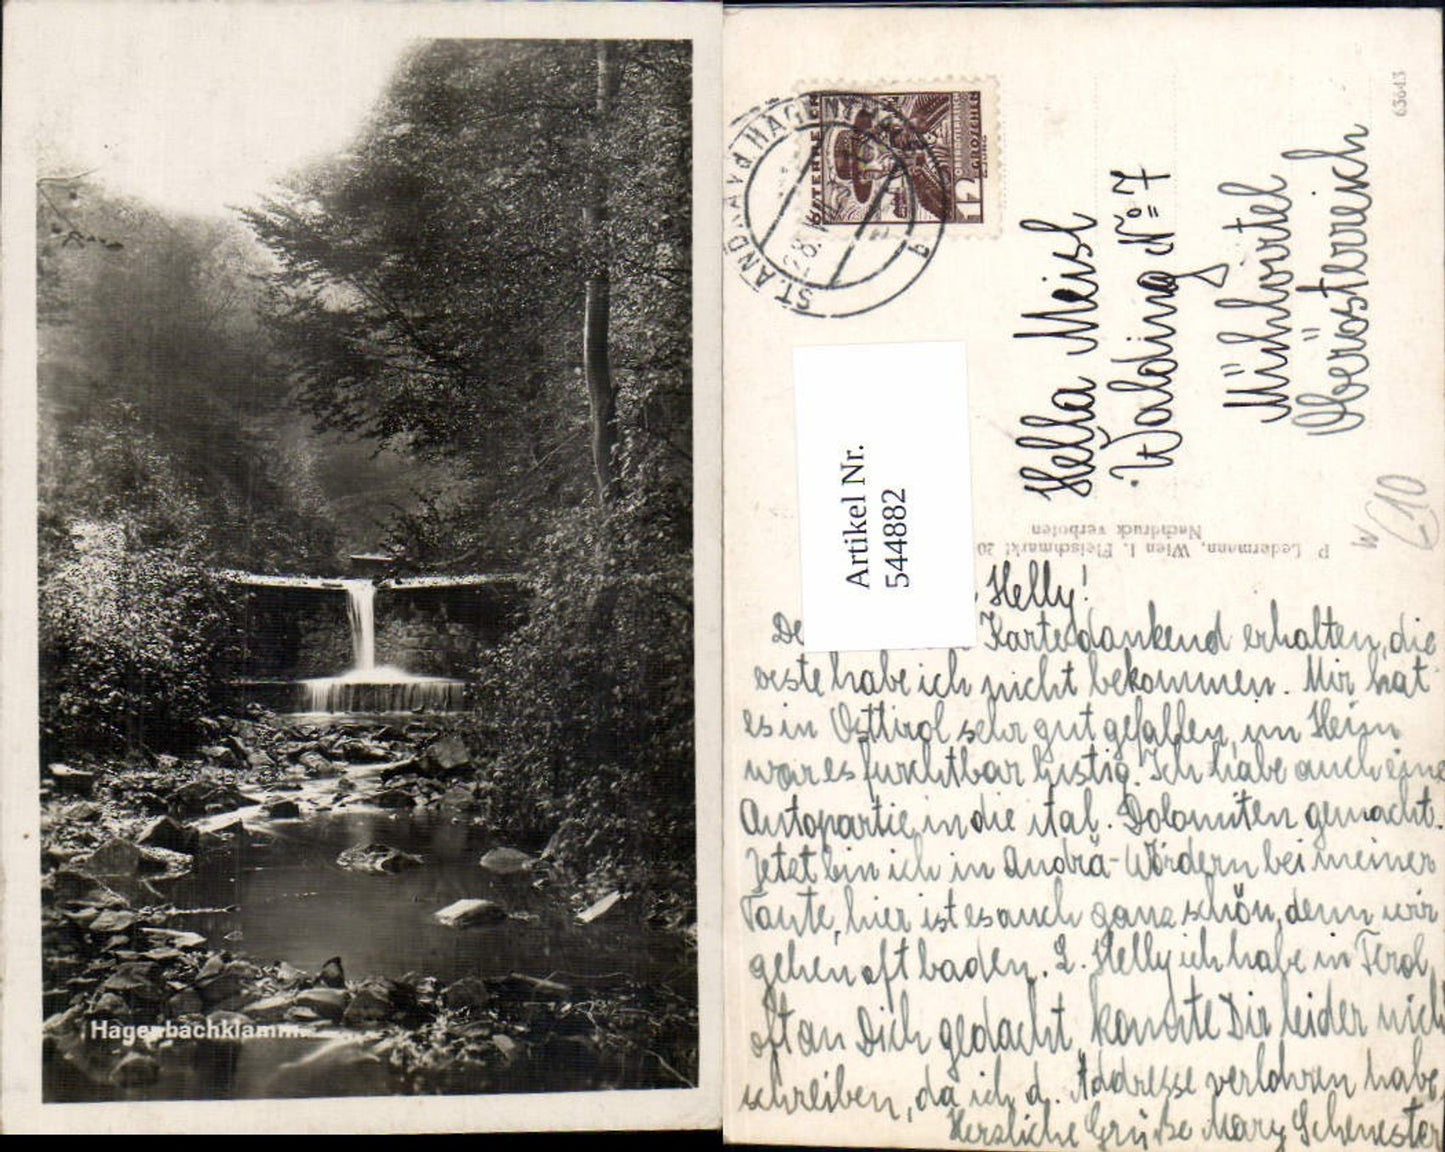 Hagenbachklamm.
ST. ANDRÄ V. D. HAGENTALE
9
ÖSTERREICH
12 GROSCHEN
Artikel Nr.
544882
63643
Hella Meisl
Walding No 7
Mühlviertel
Oberösterreich
W
10
P. Ledermann, Wien I. Fleischmarkt 20
Nachdruck verboten
Helly!
De Karte dankend erhalten, die
erste habe ich nicht bekommen. Mir hat
es in Osttirol sehr gut gefallen, im Heim
war es furchtbar lustig. Ich habe auch eine
Autopartie in die ital. Dolomiten gemacht.
Jetzt bin ich in Andrä-Wördern bei meiner
Tante, hier ist es auch ganz schön, denn wir
gehen oft baden. L. Helly ich habe in Tirol
oft an Dich gedacht, konnte Dir leider nich
schreiben, da ich d. Addresse verlohren habe,
Herzliche Grüße Mary